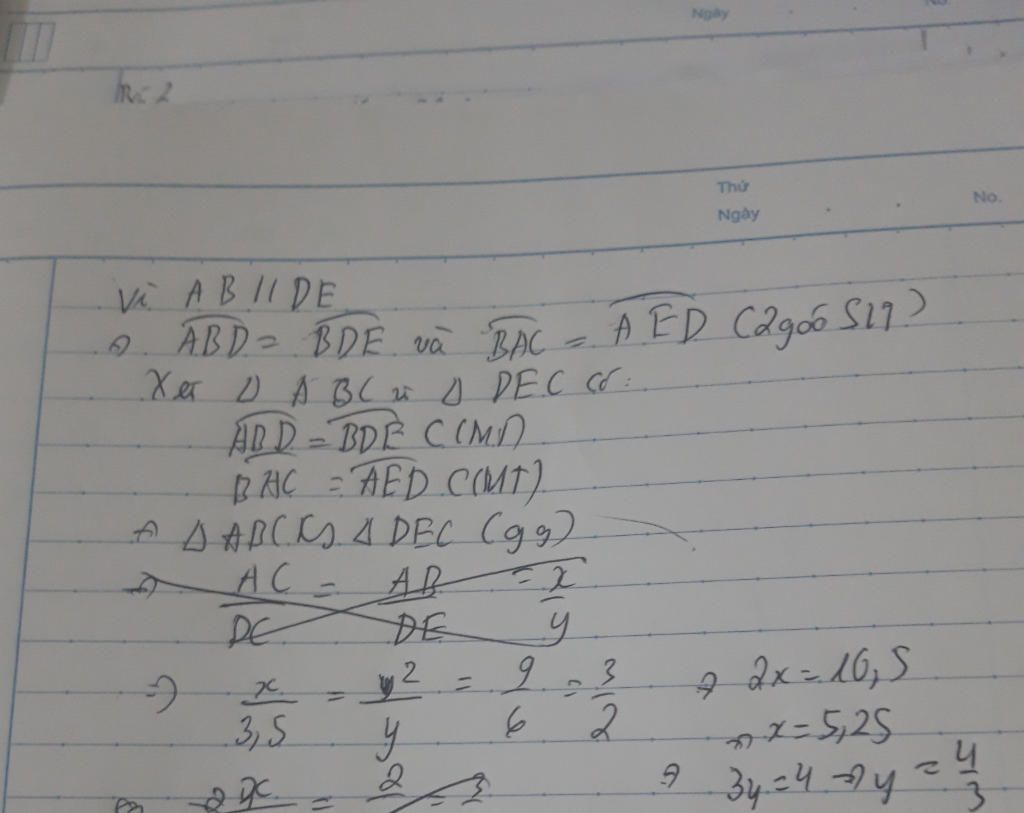 Ngày No.
Thứ
Ngày No.
Vì AB // DE
=> ABD = BDE và BAC = AED (2 góc SLT)
Xét Δ ABC và Δ DEC có:
ABD = BDE C(MT)
BAC = AED C(MT)
=> Δ ABC ∽ Δ DEC (gg)
=> AC/DC = AB/DE = x/y
=> x/3,5 = 2/y = 9/6 = 3/2 => 2x = 10,5
=> x = 5,25
=> 3y = 4 => y = 4/3